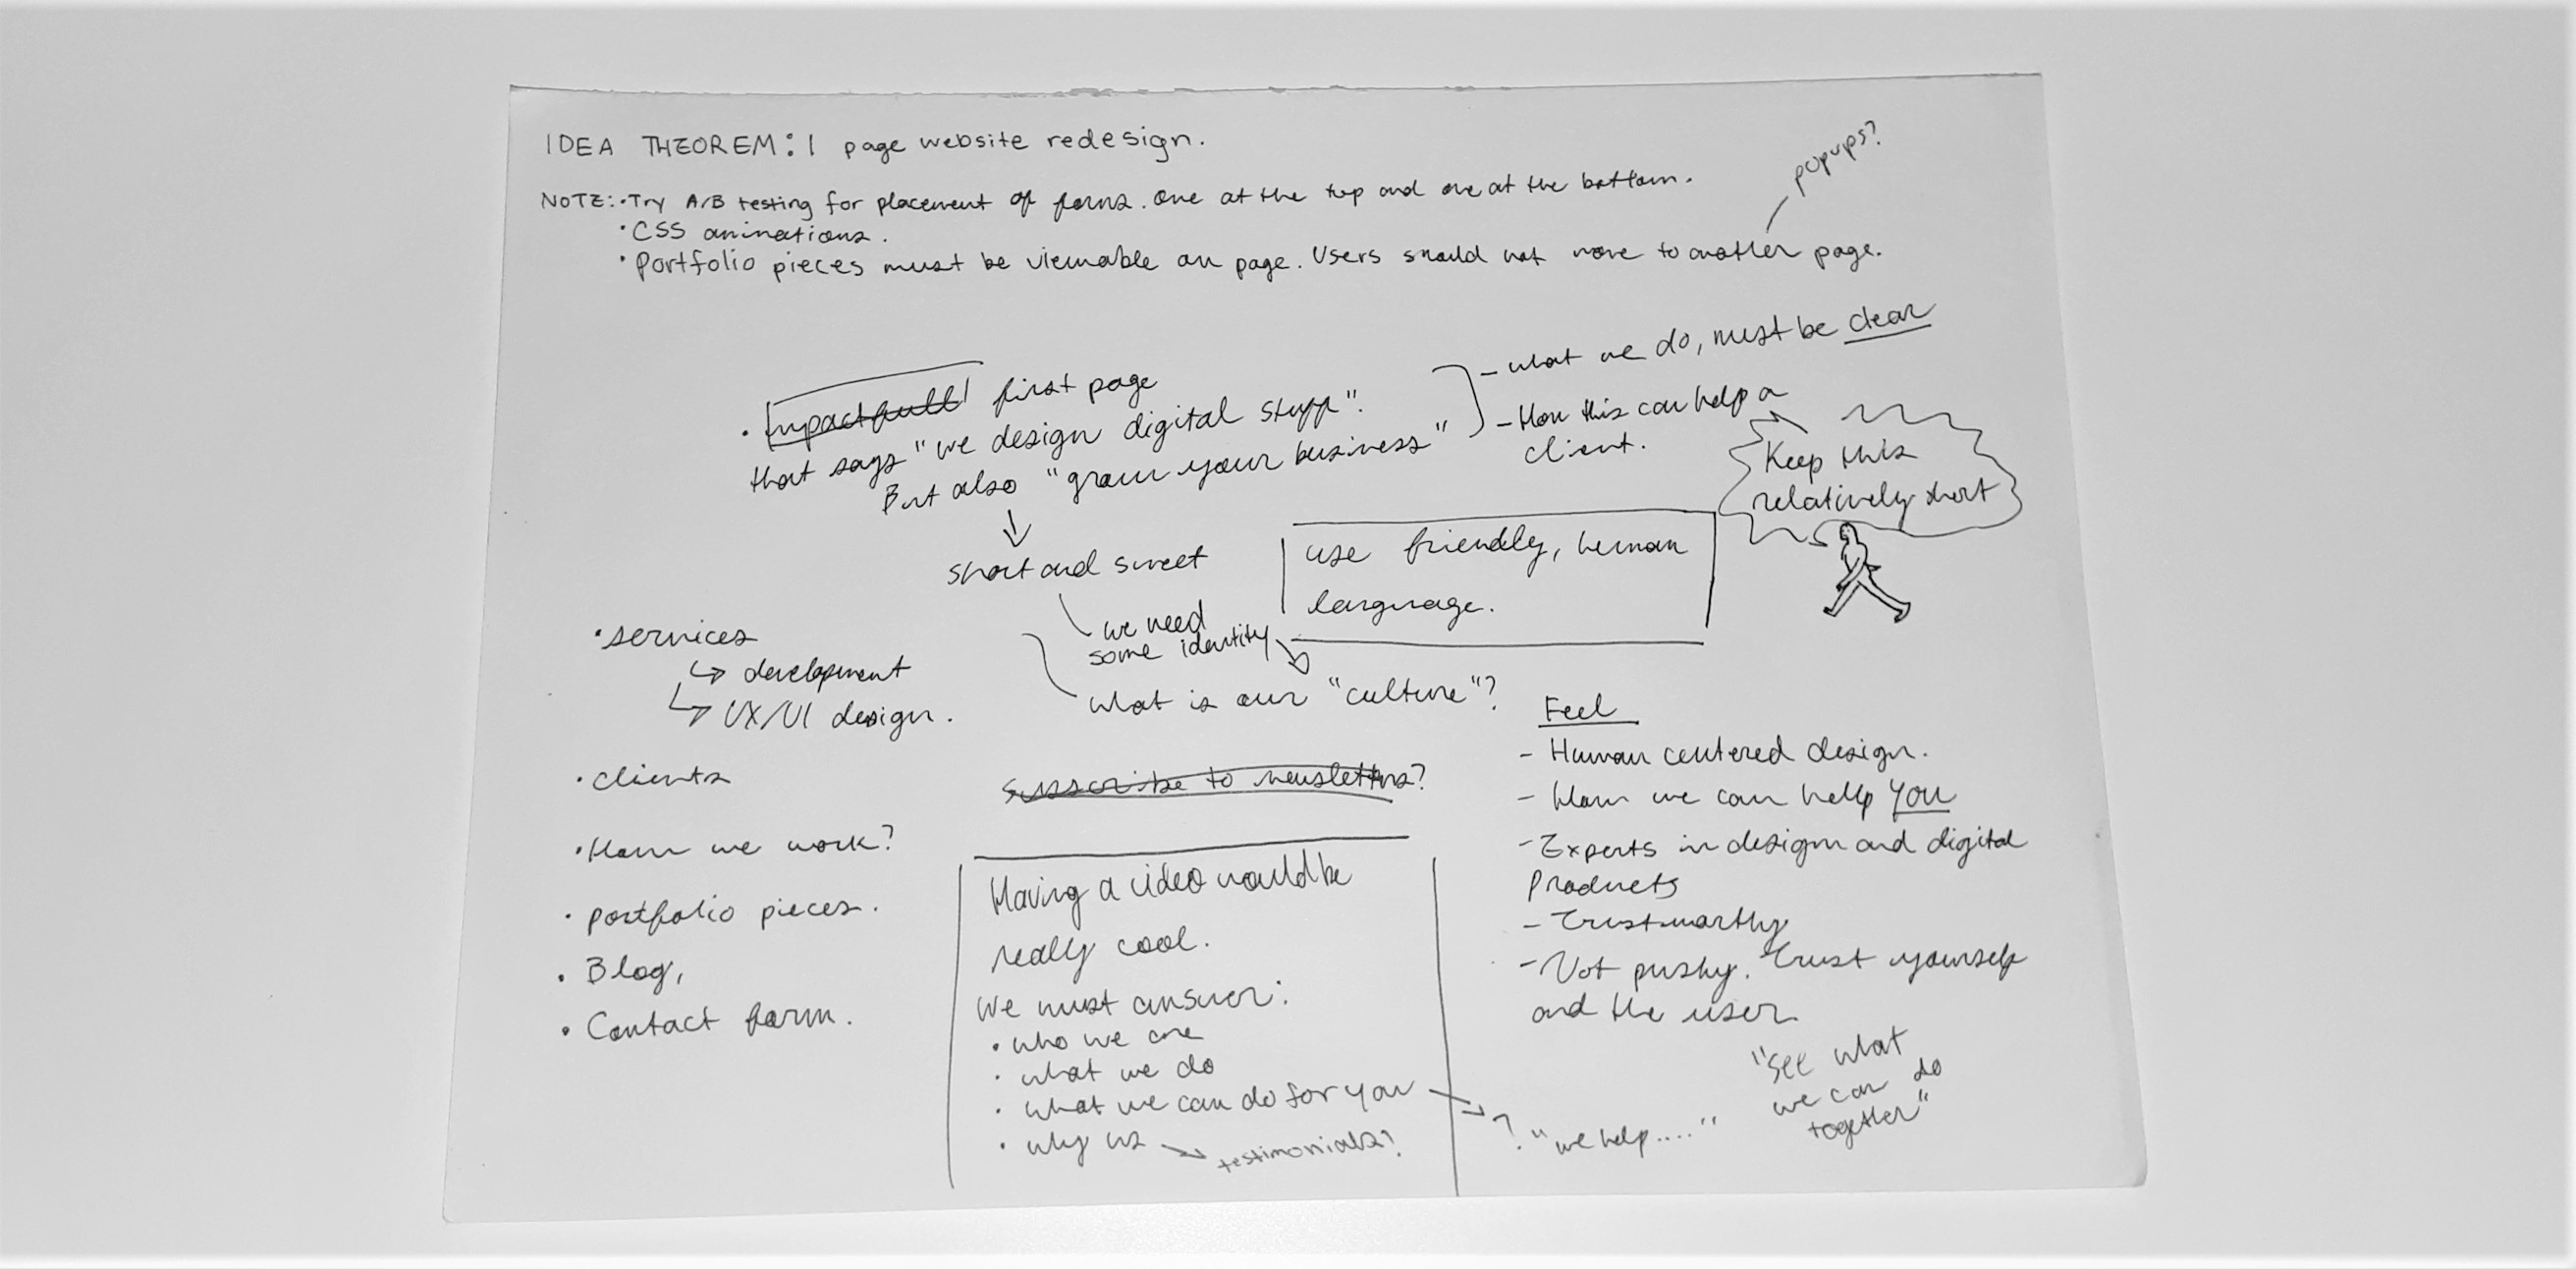 IDEA THEOREM: 1 page website redesign.
popups?
NOTE: • Try A/B testing for placement of forms. One at the top and one at the bottom.
• CSS animations.
• Portfolio pieces must be viewable on page. Users should not move to another page.
• Impactfull first page
that says "we design digital stuff".
But also "grow your business"
- what we do, must be clear
- How this can help a
client.
Keep this
relatively short
short and sweet
use friendly, human
language.
we need
some identity
what is our "culture"?
• services
development
UX/UI design.
• clients
• How we work?
• portfolio pieces.
• Blog,
• Contact form.
Subscribe to newsletters?
Having a video would be
really cool.
We must answer:
• who we are
• what we do
• what we can do for you
• why us
testimonials?
Feel
- Human centered design.
- How we can help YOU
- Experts in design and digital
Products
- Trustworthy
- Not pushy. Trust yourself
and the user
? "we help....."
"See what
we can do
together"